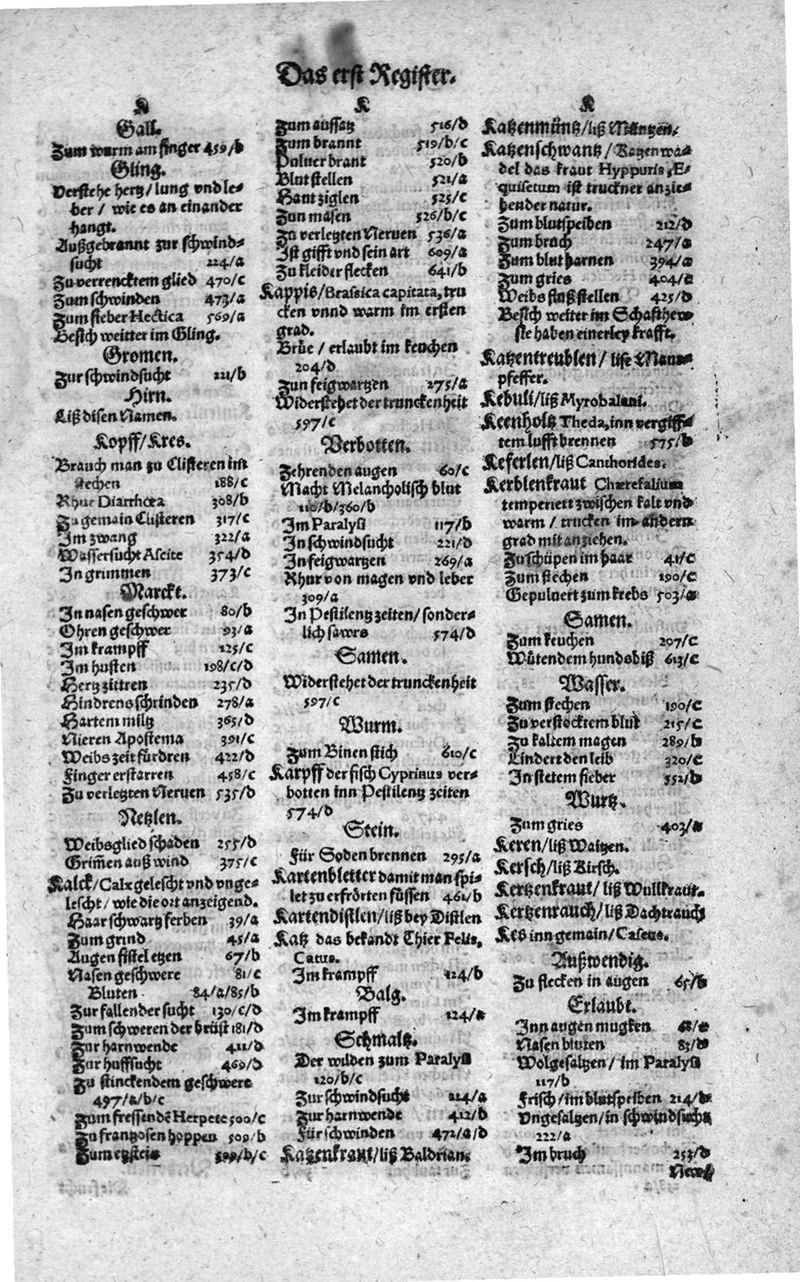 Das erst Register.
K
Gall.
Zum wurm am finger 459/b
Gling.
Verstehe hertz/ lung vnd le-
ber/ wie es an einander
hangt.
Außgebrannt zur schwind-
sucht 224/a
Zu verrencktem glied 470/c
Zum schwinden 473/a
Zum fieber Hectica 569/a
Besich weitter im Gling.
Gromen.
Zur schwindsucht 221/b
Hirn.
Liß disen Namen.
Kopff/Kres.
Brauch man zu Clisteren inn
stechen 188/c
Rhur Diarrhœa 308/b
Zu gemain Clisteren 317/c
Im zwang 322/a
Wassersucht Ascite 354/d
In grimmen 373/c
Marckt.
In nasen geschwer 80/b
Ohren geschwer 93/a
Im krampff 125/c
Im husten 198/c/d
Hertz zittren 235/d
Hindrens schrinden 278/a
Hartem miltz 365/d
Nieren Apostema 391/c
Weibs zeit fürdren 422/d
Finger erstarren 458/c
Zu verletzten Neruen 535/d
Netzlen.
Weibsglied schaden 255/d
Grim̃en auß wind 375/c
Kalck/Calx gelescht vnd vnge-
lescht/ wie die ort anzeigend.
Haar schwartz ferben 39/a
Zum grind 45/a
Augen fistel etzen 67/b
Nasen geschwere 81/c
Bluten 84/a/85/b
Zur fallender sucht 130/c/d
Zum schweren der brüst 181/d
Zur harnwende 411/d
Zur huffsucht 469/d
Zu stinckendem geschwere
497/a/b/c
Zum fressendẽ Herpete 500/c
Zu frantzosen hoppen 509/b
K
Zum aussatz 516/d
Zum brannt 519/b/c
Puluer brant 520/b
Blut stellen 521/a
Haut ziglen 525/c
Zun masen 526/b/c
Zu verletzten Neruen 536/a
Ist gifft vnd sein art 609/a
Zu kleider flecken 641/b
Kappis/Brassica capitata, tru
cken vnnd warm im ersten
grad.
Brüe/ erlaubt im keuchen
204/d
Zun feigwartzen 275/a
Widerstehet der trunckenheit
597/c
Verbotten.
Zehrenden augen 60/c
Macht Melancholisch blut
110/b/360/b
Im Paralyß 117/b
In schwindsucht 221/d
In feigwartzen 269/a
Rhur von magen vnd leber
309/a
In Pestilentz zeiten/ sonder-
lich sawrs 574/d
Samen.
Widerstehet der trunckenheit
597/c
Wurm.
Zum Binen stich 610/c
Karpff der fisch Cyprinus ver-
botten inn Pestilentz zeiten
574/d
Stein.
Für Soden brennen 295/a
Kartenbletter damit man spi-
let zu erfrörten füssen 461/b
Kartendistlen/liß bey Distlen
Katz das bekandt Thier Felis,
Catus.
Im krampff 124/b
Balg.
Im krampff 124/a
Schmaltz.
Der wilden zum Paralyß
120/b/c
Zur schwindsucht 224/a
Zur harnwende 412/b
Für schwinden 472/a/d
Katzenkraut/liß Baldrian.
K
Katzenmüntz/liß Müntzen.
Katzenschwantz/ Katzen wa-
del das kraut Hyppuris, E-
quisetum ist truckner anzie-
hender natur.
Zum blutspeiben 212/d
Zum bruch 247/a
Zum blut harnen 394/a
Zum gries 404/c
Weibs fluß stellen 425/d
Besich weiter im Schafthew
sie haben einerley krafft.
Katzentreublen/ lise Maur-
pfeffer.
Kebuli/liß Myrobalani.
Keenholtz Theda, inn vergiff-
tem lufft brennen 575/b
Keferlen/liß Canthorides.
Kerblenkraut Chærefolium
temperiert zwischen kalt vnd
warm/ trucken im andern
grad mit anziehen.
Zu schüpen im haar 41/c
Zum stechen 190/c
Gepuluert zum krebs 503/a
Samen.
Zum keuchen 207/c
Wütendem hundsbiß 613/c
Wasser.
Zum stechen 190/c
Zu verstocktem blut 215/c
Zu kaltem magen 289/b
Lindert den leib 320/c
In stetem fieber 552/b
Wurtz.
Zum gries 403/a
Keren/liß Waitzen.
Kersch/liß Kirsch.
Kertzenkraut/ liß Wullkraut.
Kertzenrauch/liß Dachtrauch
Kes inn gemain/Caseus.
Außwendig.
Zu flecken in augen 65/b
Erlaubt.
Inn augen mugken
Nasen bluten 83/d
Wolgesaltzen/ im Paralyß
117/b
Frisch/im blutspeiben 214/b
Vngesaltzen/in schwindsucht
222/a
Im bruch 253/d